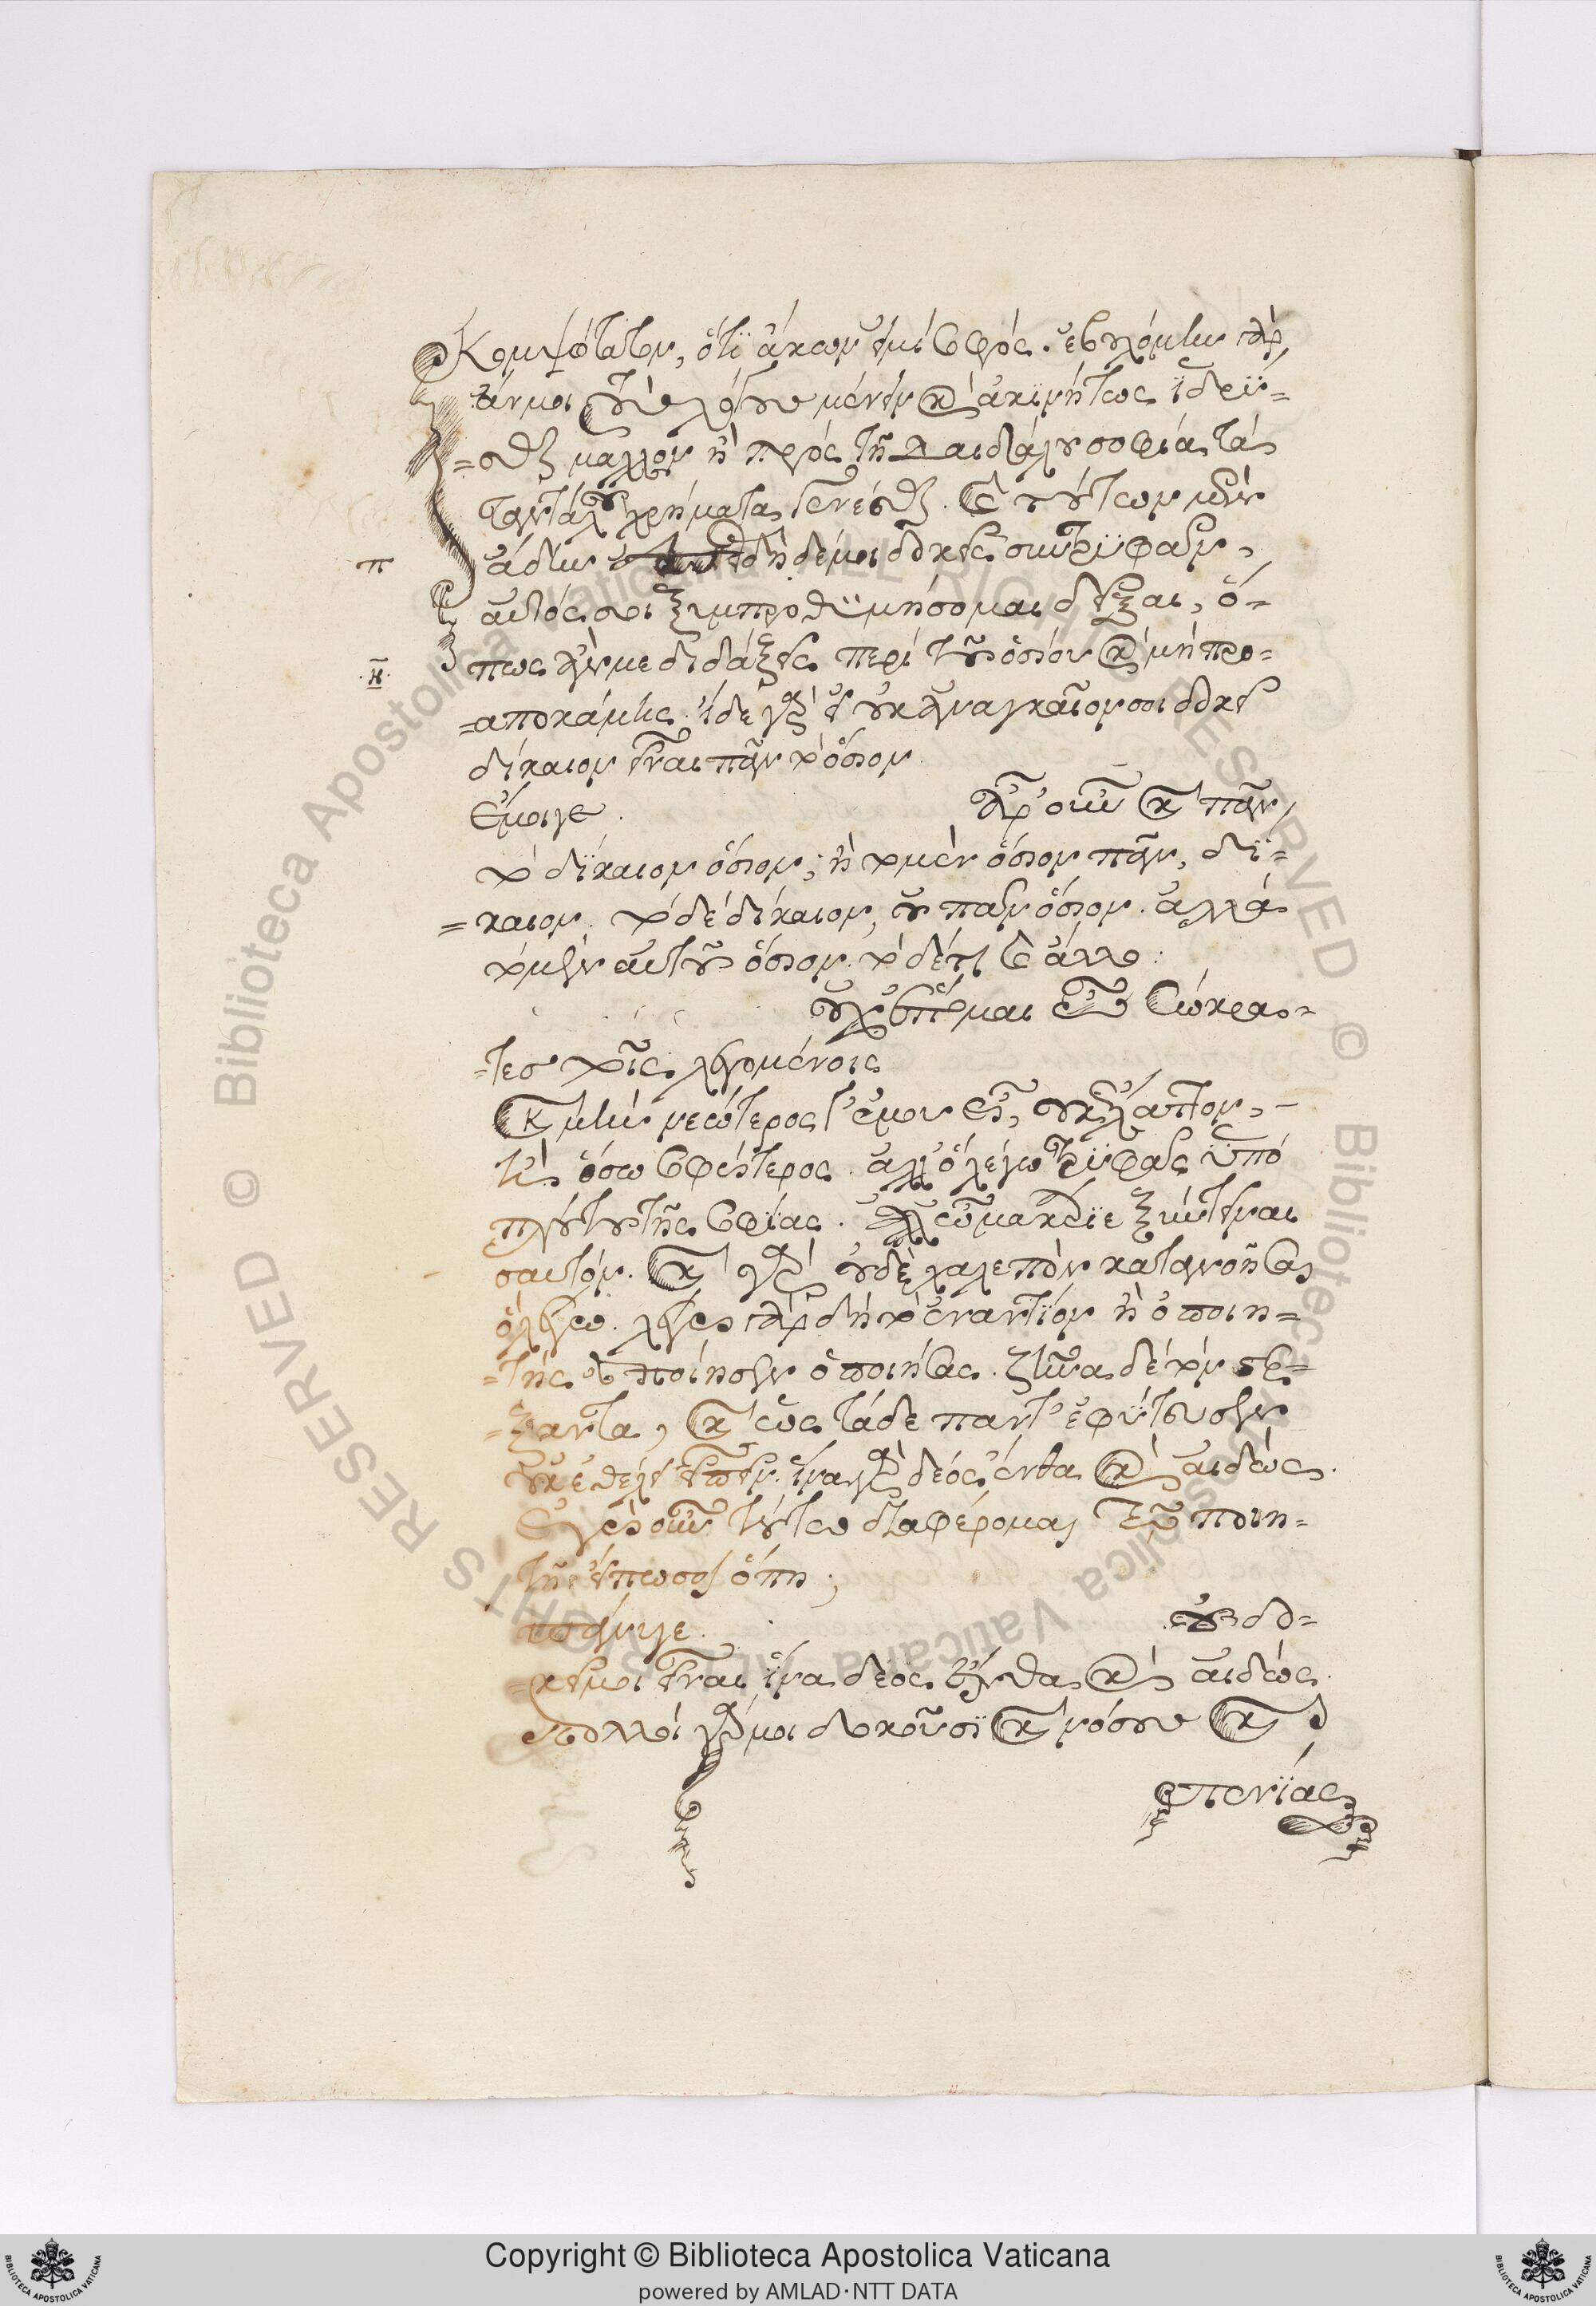 Κομψότατον, ὅτι ἄκων εἰμὶ σοφός. ἐβουλόμην γὰρ
ἄν μοι τοὺς λόγους μένειν καὶ ἀκινήτως ἱδρῦ=
=σθαι μᾶλλον ἢ πρὸς τῇ δαιδάλου σοφίᾳ τὰ
ταντάλου χρήματα γενέσθαι. καὶ τούτων μὲν
ἄδην ἐπειδὴ δέ μοι δοκεῖς σὺ τρυφᾶν,
π
αὐτός σοι ξυμπροθυμήσομαι δεῖξαι, ὅ=
πως ἄν με διδάξεις περὶ τοῦ ὁσίου καὶ μὴ προ=
·η·
=αποκάμῃς. ἰδὲ γὰρ εἰ οὐκ ἀναγκαῖον σοι δοκεῖ
δίκαιον εἶναι πᾶν τὸ ὅσιον.
ἔμοιγε. ἆρ' οὖν καὶ πᾶν
τὸ δίκαιον ὅσιον; ἢ τὸ μὲν ὅσιον πᾶν, δί=
=καιον. τὸ δὲ δίκαιον, οὐ πᾶν ὅσιον. ἀλλὰ
τὸ μὲν αὐτοῦ ὅσιον. τὸ δέ τι καὶ ἄλλο:
οὐχ ἕπομαι ὦ σώκρα=
=τες τοῖς λεγομένοις
καὶ μὴν νεώτερος γ' ἐμοῦ εἶ, οὐκ ἔλαττον,
ἢ ὅσῳ σοφώτερος. ἀλλ' ὃ λέγω τρυφᾷς ὑπὸ
πλούτου τῆς σοφίας. ἀλλ' ὦ μακάριε ξύντεινε
σαυτόν. καὶ γὰρ οὐδὲ χαλεπὸν κατανοῆσαι
ὃ λέγω. λέγω γὰρ δὴ τὸ ἐναντίον ἢ ὁ ποιη=
=τὴς ἐποίησεν ὁ ποιήσας. ζῆνα δὲ τὸν ἔρ=
=ξαντα, καὶ ὃς τάδε πάντ' ἐφύτευσεν
οὐκ ἐθέλει εἰπεῖν. ἵνα γὰρ δέος ἔνθα καὶ αἰδώς.
ἐγὼ οὖν τούτῳ διαφέρομαι τῷ ποιη=
τῇ εἴπω σοι ὅπη;
πάνυ γε. οὐ δο=
=κεῖ μοι εἶναι ἵνα δέος ἔνθα καὶ αἰδώς.
πολλοὶ γάρ μοι δοκοῦσι καὶ νόσους καὶ
πενίας